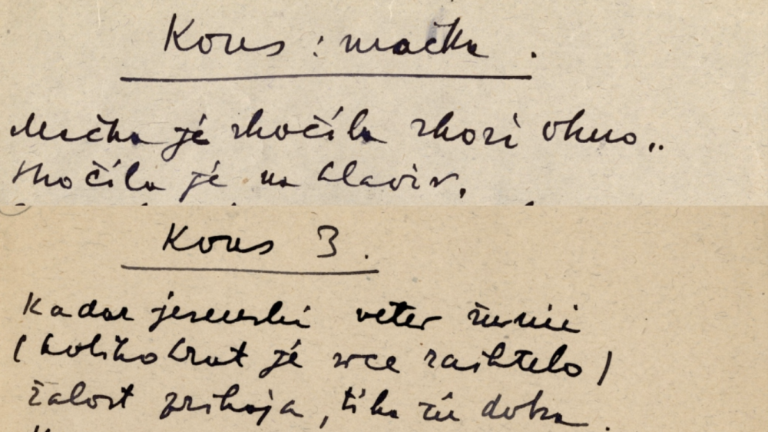 Kons : mačka .
Mačka je skočila skozi okno..
skočila je na klavir.
Kons 3.
Kadar jesenski veter šumi
(kolikokrat je srce zaihtelo)
žalost prihaja, tiha